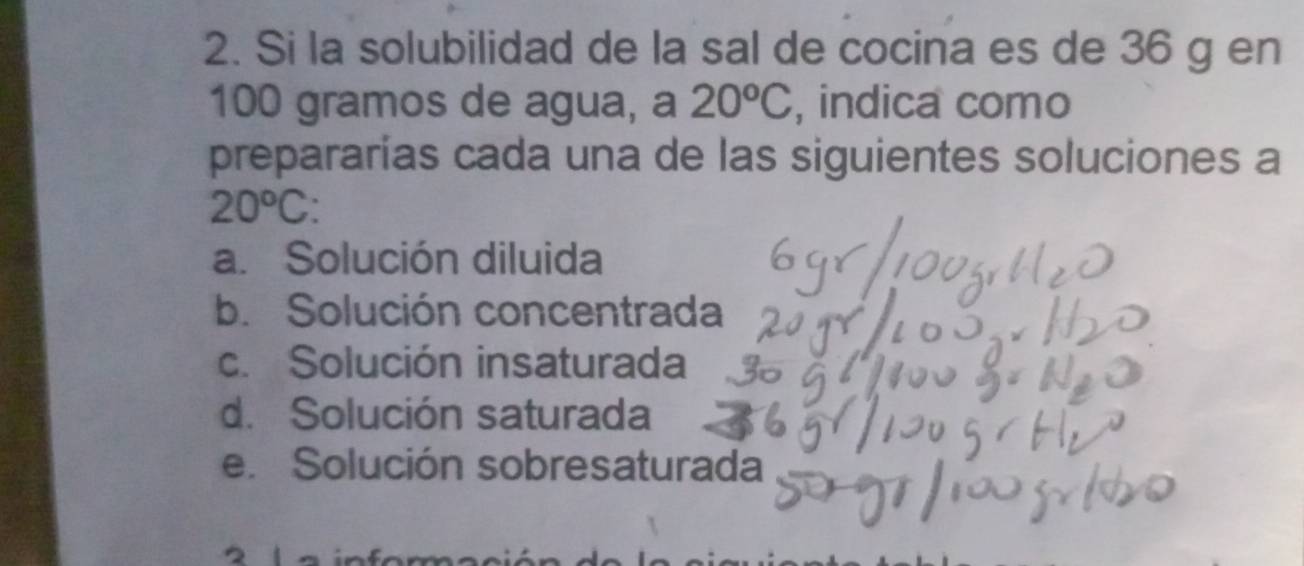 2. Si la solubilidad de la sal de cocina es de 36 g en
100 gramos de agua, a 20°C, indica como
prepararías cada una de las siguientes soluciones a
20°C:
a. Solución diluida 6gr/100gr H2O
b. Solución concentrada 20gr/100gr H2O
c. Solución insaturada 30 gr/100 gr H2O
d. Solución saturada 36 gr/100 gr H2O
e. Solución sobresaturada 50 gr/100 gr H2O
3. La información de la